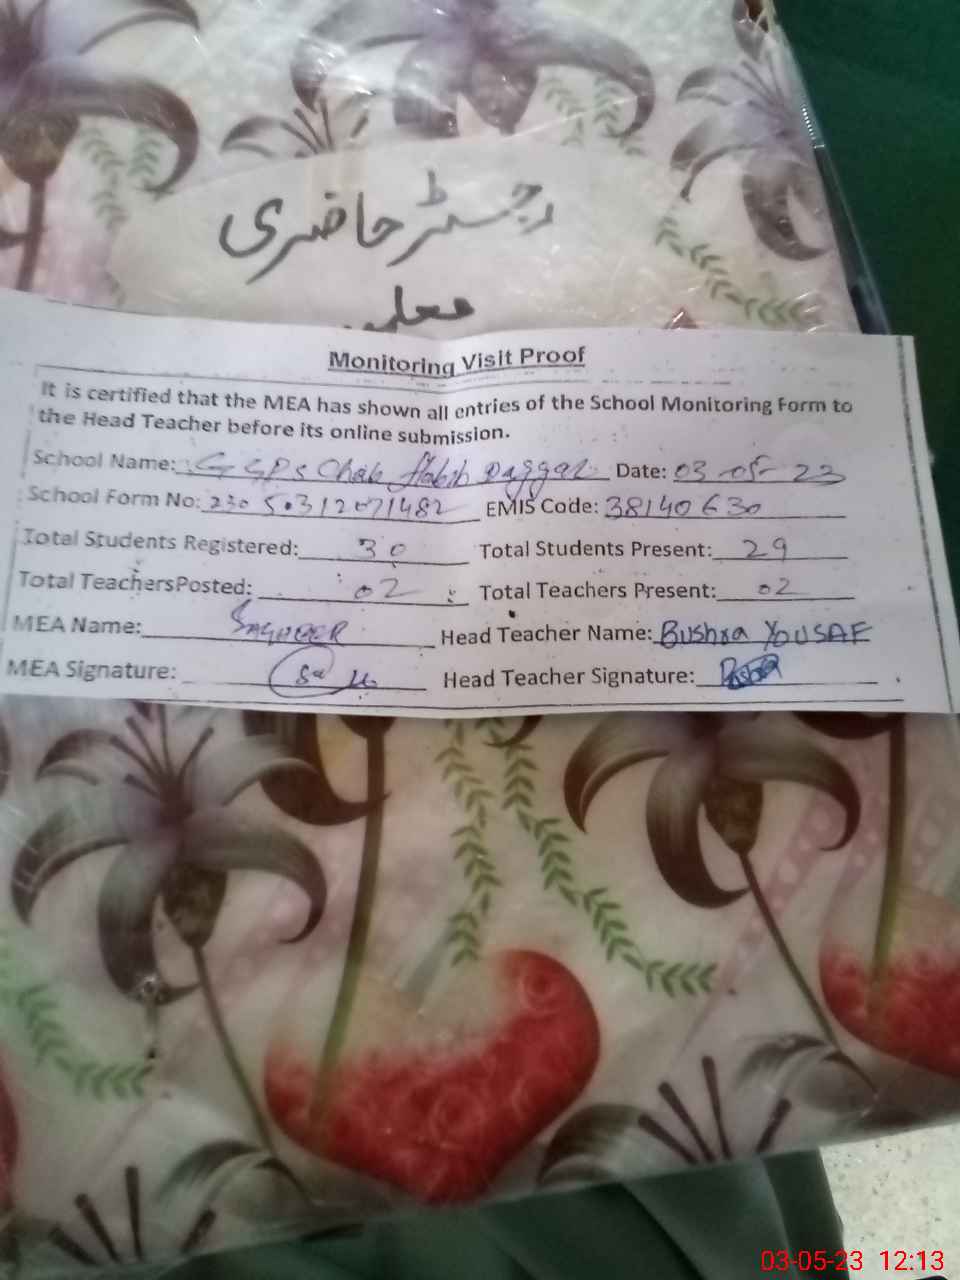 رجسٹر حاضری
Monitoring Visit Proof
It is certified that the MEA has shown all entries of the School Monitoring Form to
the Head Teacher before its online submission.
School Name: GGPS Chak Habib Date: 03-05-23
School Form No: EMIS Code: 38140630
Total Students Registered: 30 Total Students Present: 29
Total TeachersPosted: 02 Total Teachers Present: 02
MEA Name: Head Teacher Name: Bushra YOUSAF
MEA Signature: Head Teacher Signature:
03-05-23 12:13